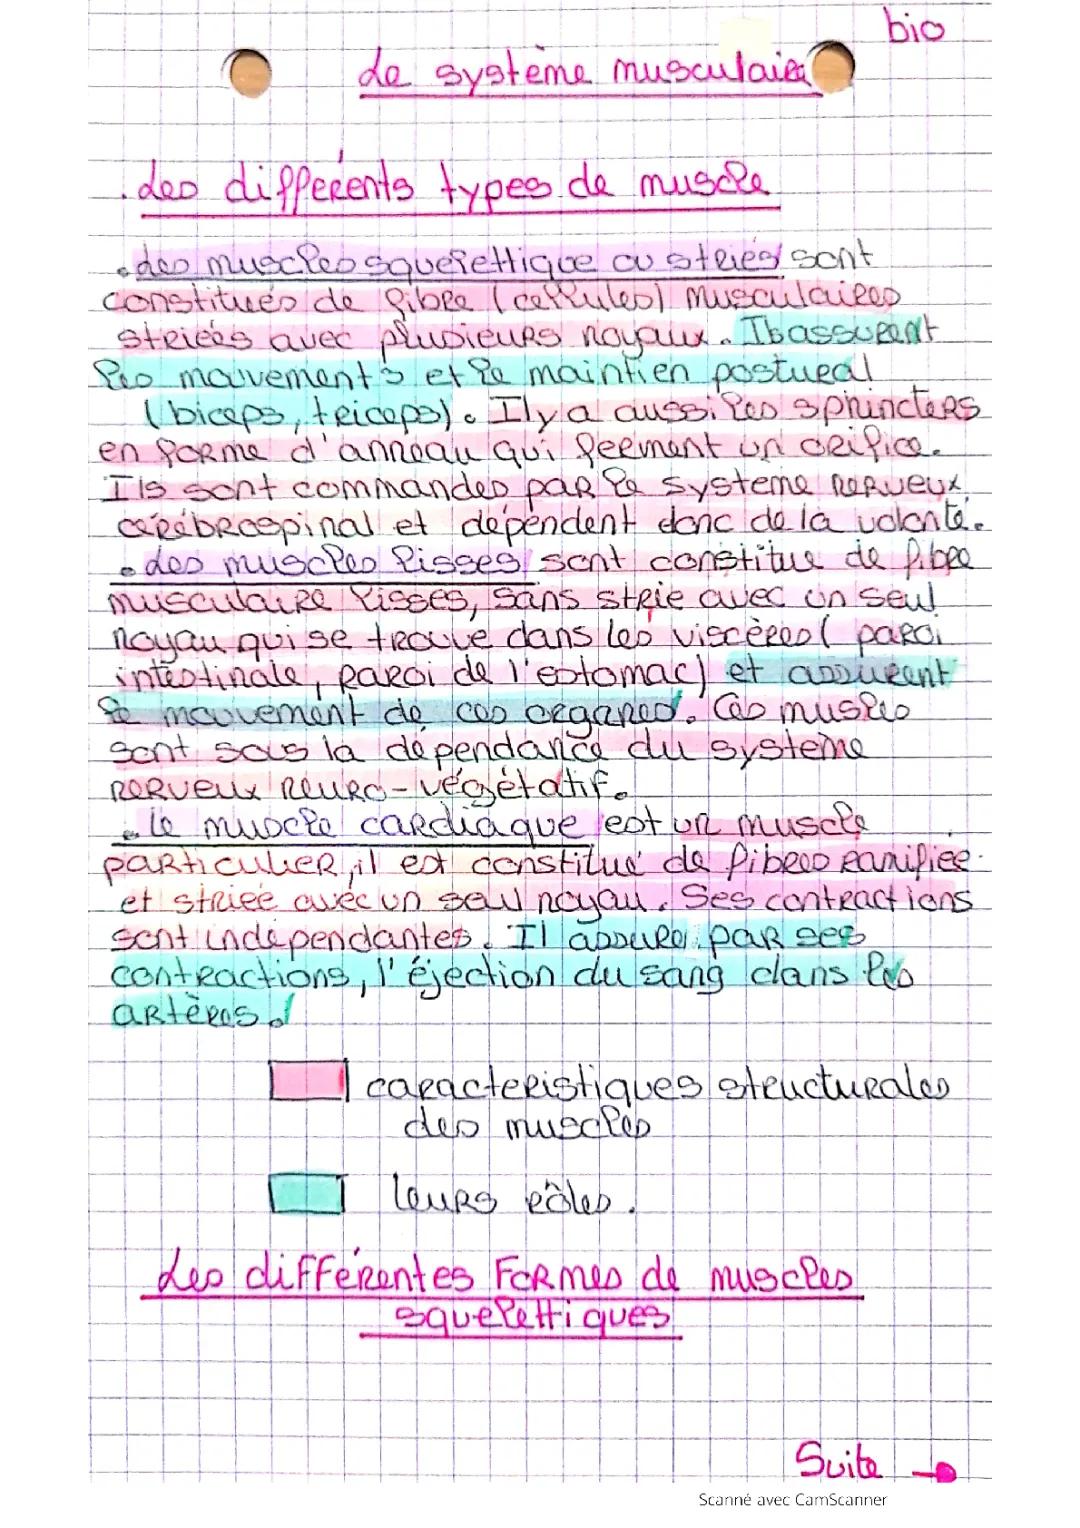 bio
Le système musculaire
. Les différents types de muscle
. Les muscles squelettique ou striés sont
constitués de fibre (cellules) musculaires
striées avec plusieurs noyaux. Ils assurent
les mouvements et le maintien postural
(biceps, triceps). Il y a aussi les sphincters
en forme d'anneau qui ferment un orifice.
Ils sont commandés par le système nerveux
cérébrospinal et dépendent donc de la volonté.
. Les muscles lisses sont constitue de fibre
musculaire lisses, sans strie avec un seul
noyau qui se trouve dans les viscères ( paroi
intestinale, paroi de l'estomac) et assurent
le mouvement de ces organes. Ces muscles
sont sous la dépendance du système
nerveux neuro-végétatif.
. le muscle cardiaque est un muscle
particulier, il est constitué de fibres ramifiée
et striée avec un seul noyau. Ses contractions
sont indépendantes. Il assure, par ses
contractions, l'éjection du sang dans les
artères.
caracteristiques structurales
des muscles
leurs rôles.
Les différentes Formes de muscles
squelettiques
Suite
Scanné avec CamScanner